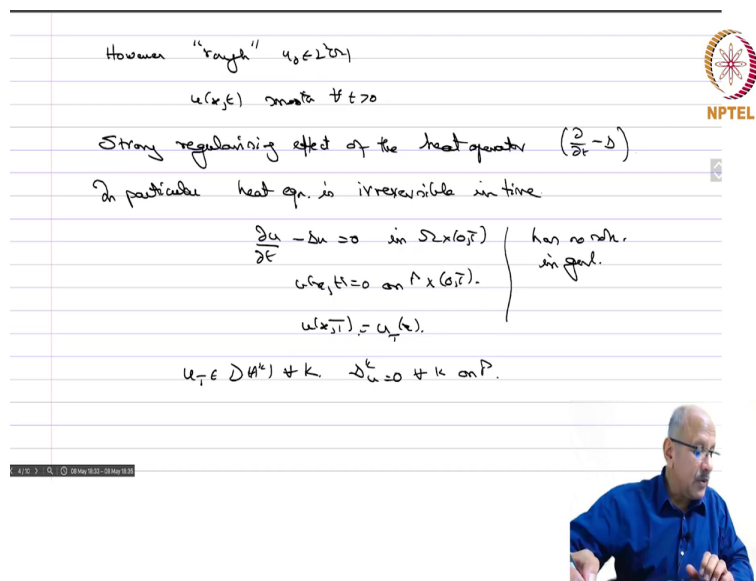 However "rough" u₀ ∈ L²(Ω)
u(x,t) smooth ∀ t>0
Strong regularising effect of the heat operator (∂/∂t − Δ)
In particular heat eqn. is irreversible in time.
∂u/∂t − Δu = 0 in Ω×(0,T) | has no soln.
u(x,t)=0 on Γ×(0,T). | in genl.
u(x,T) = u_T(x).
u_T ∈ D(A^k) ∀ k. Δ^k u = 0 ∀ k on Γ.
NPTEL
4/10
06 May 18:33 - 08 May 18:36